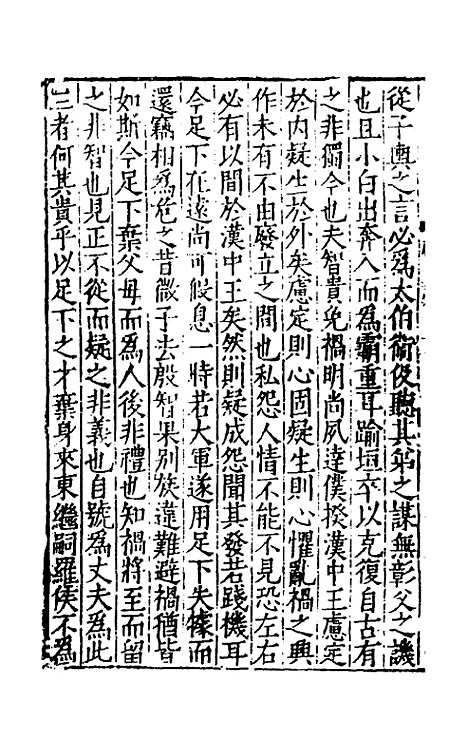 從子輿之言必為太伯衛伋聽其弟之謀無彰父之譏
也且小白出奔入而為霸重耳踰垣卒以克復自古有
之非獨今也夫智貴免禍明尚夙達僕揆漢中王慮定
於內疑生於外矣慮定則心固疑生則心懼亂禍之興
作未有不由廢立之間也私怨人情不能不見恐左右
必有以間於漢中王矣然則疑成怨聞其發若踐機耳
今足下在遠尚可假息一時若大軍遂用足下失據而
還竊相為危之昔微子去殷智果別族違難避禍猶皆
如斯今足下棄父母而為人後非禮也知禍將至而留
之非智也見正不從而疑之非義也自號為丈夫為此
三者何其貴乎以足下之才棄身來東繼嗣羅侯不為